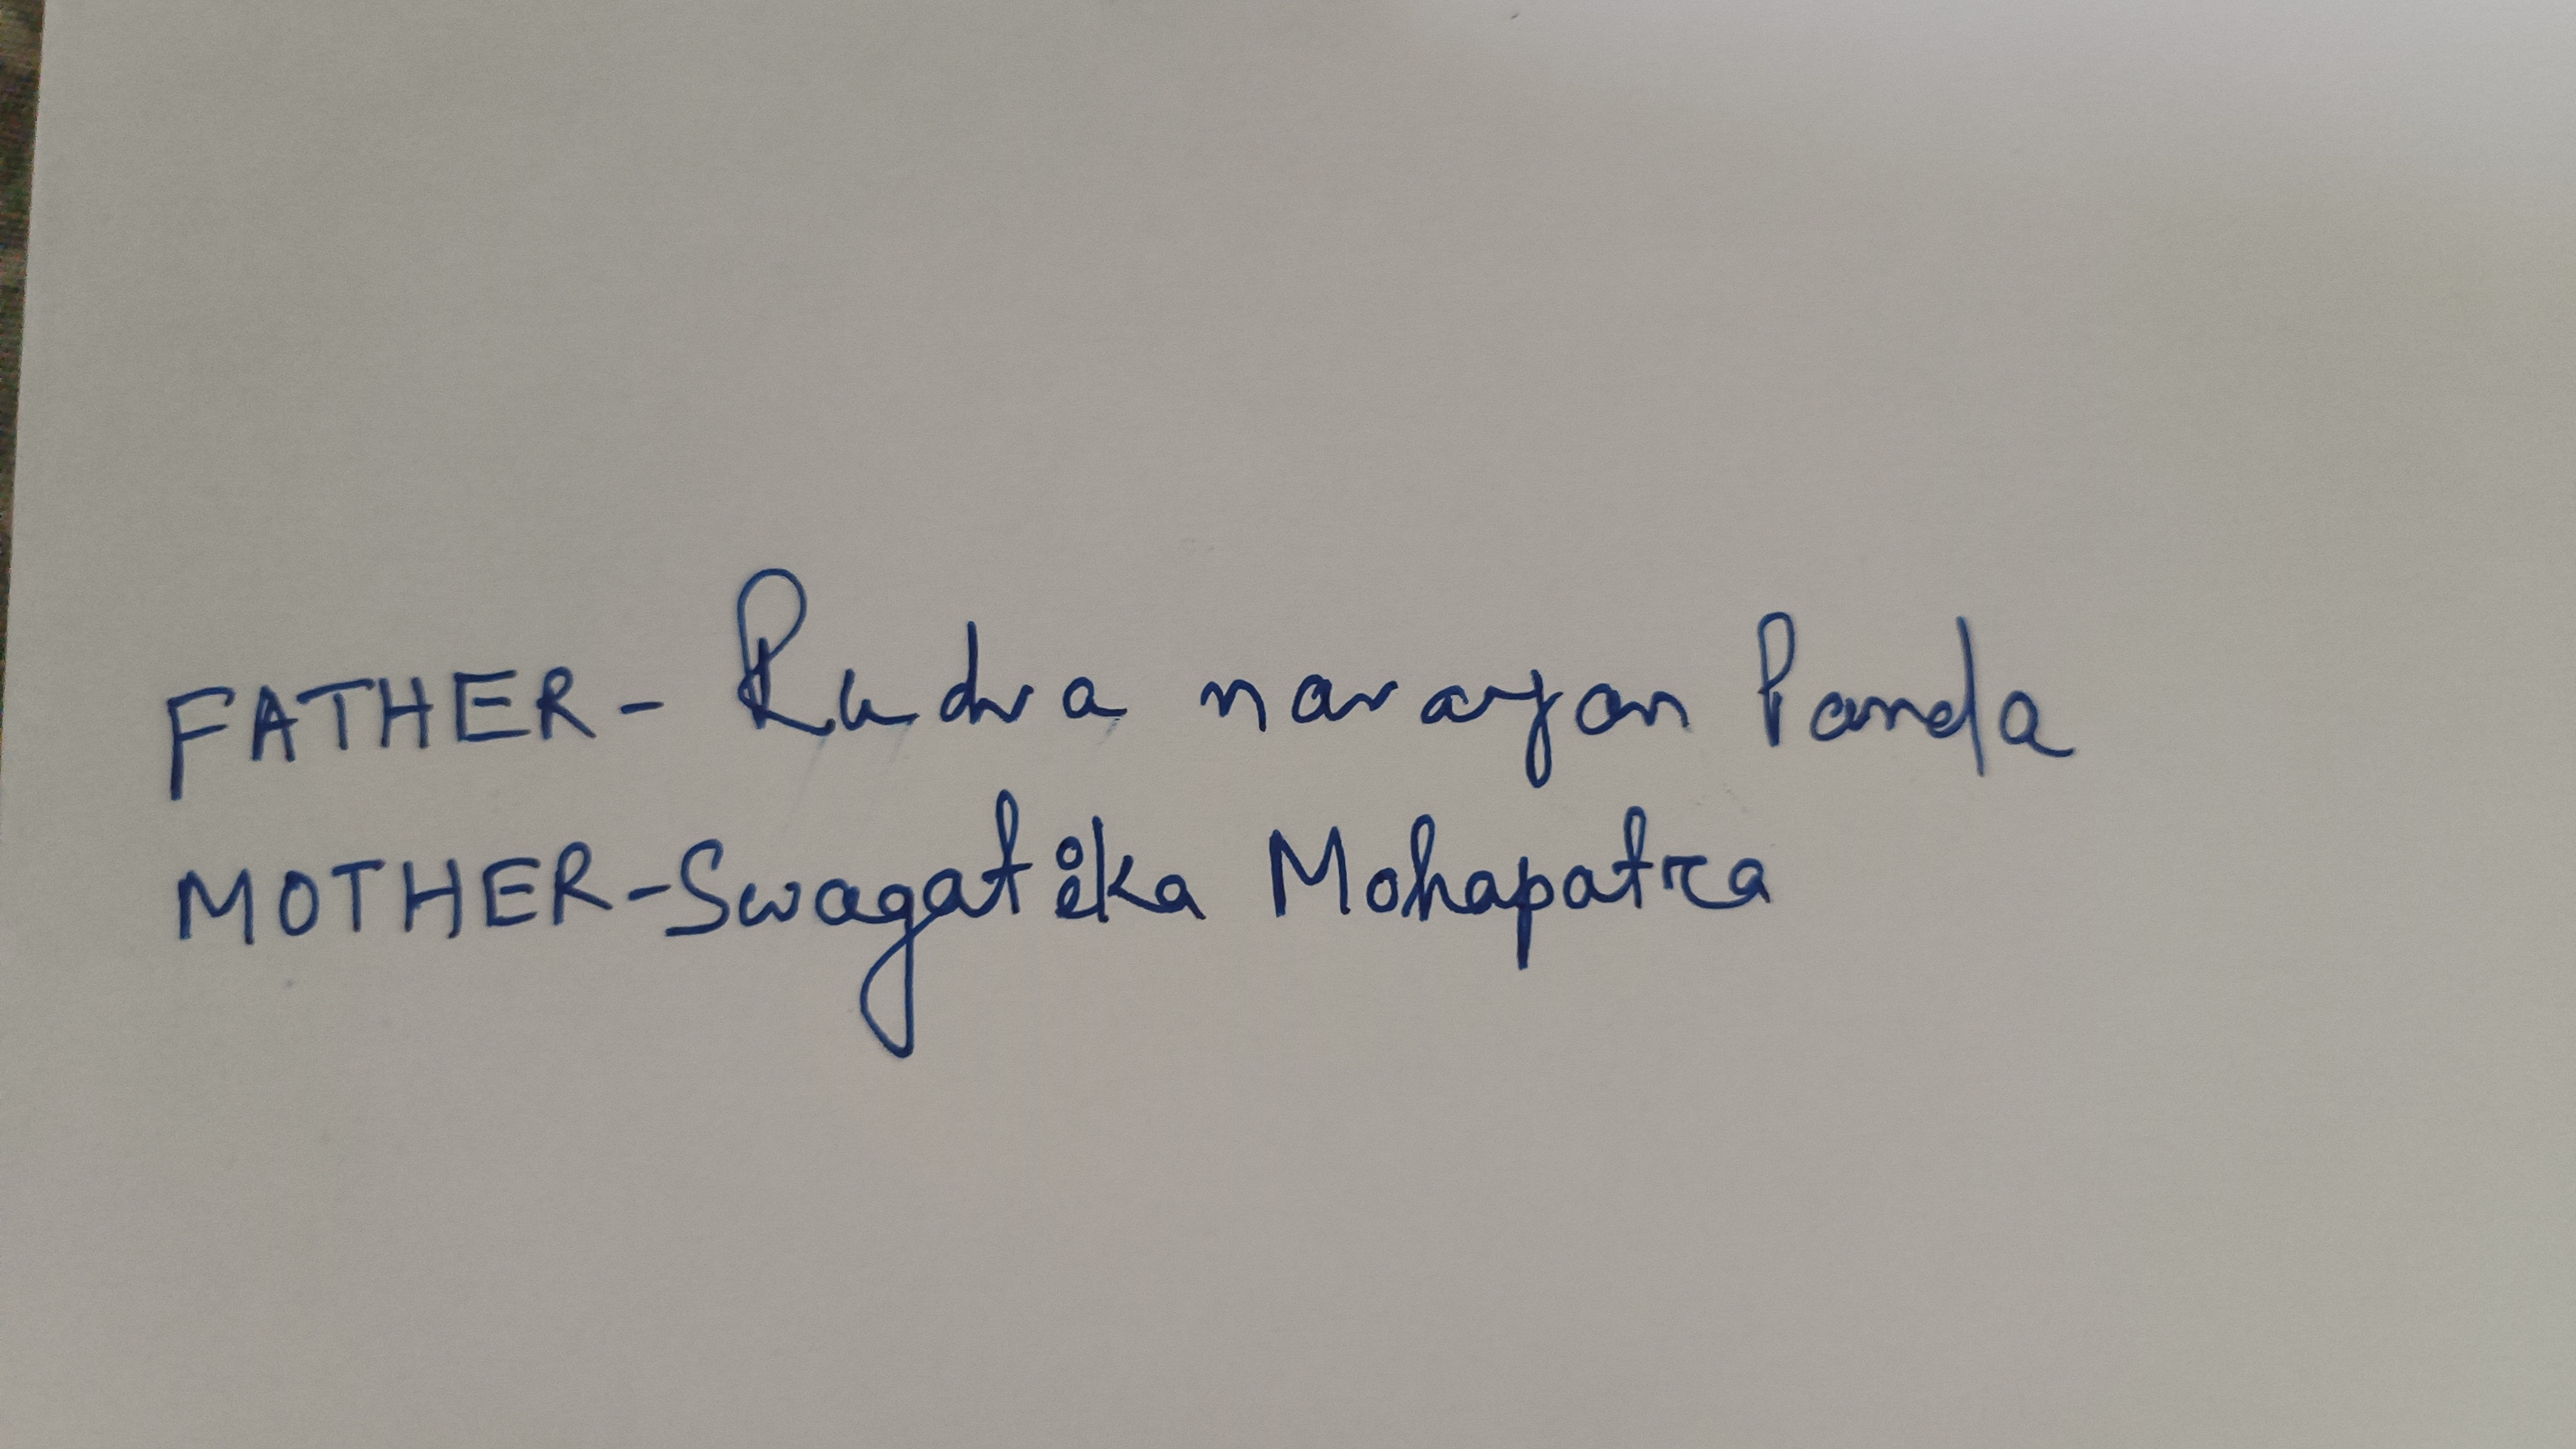 FATHER- Rudra narayan Panda
MOTHER-Swagatika Mohapatra